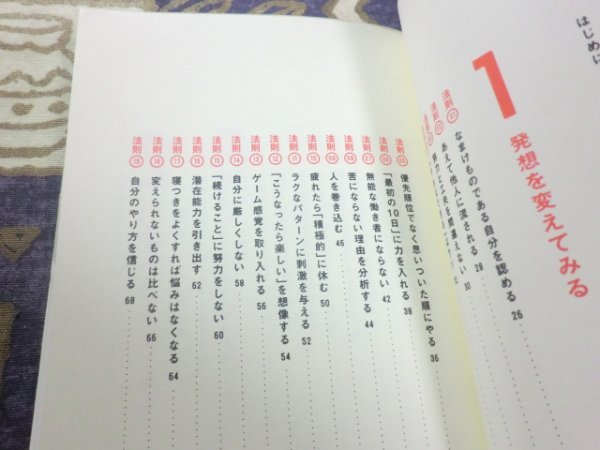 はじめに
1 発想を変えてみる
法則 01 なまけものである自分を認める 26
法則 02 あえて他人に流される 28
を間違えない 30
法則 05 優先順位でなく思いついた順にやる 36
法則 06 「最初の10日」に力を入れる 38
法則 07 無能な働き者にならない 42
法則 08 苦にならない理由を分析する 44
法則 09 人を巻き込む 46
法則 10 疲れたら「積極的」に休む 50
法則 11 ラクなパターンに刺激を与える 52
法則 12 「こうなったら楽しい」を想像する 54
法則 13 ゲーム感覚を取り入れる 56
法則 14 自分に厳しくしない 58
法則 15 「続けること」に努力をしない 60
法則 16 潜在能力を引き出す 62
法則 17 寝つきをよくすれば悩みはなくなる 64
法則 18 変えられないものは比べない 66
法則 19 自分のやり方を信じる 68